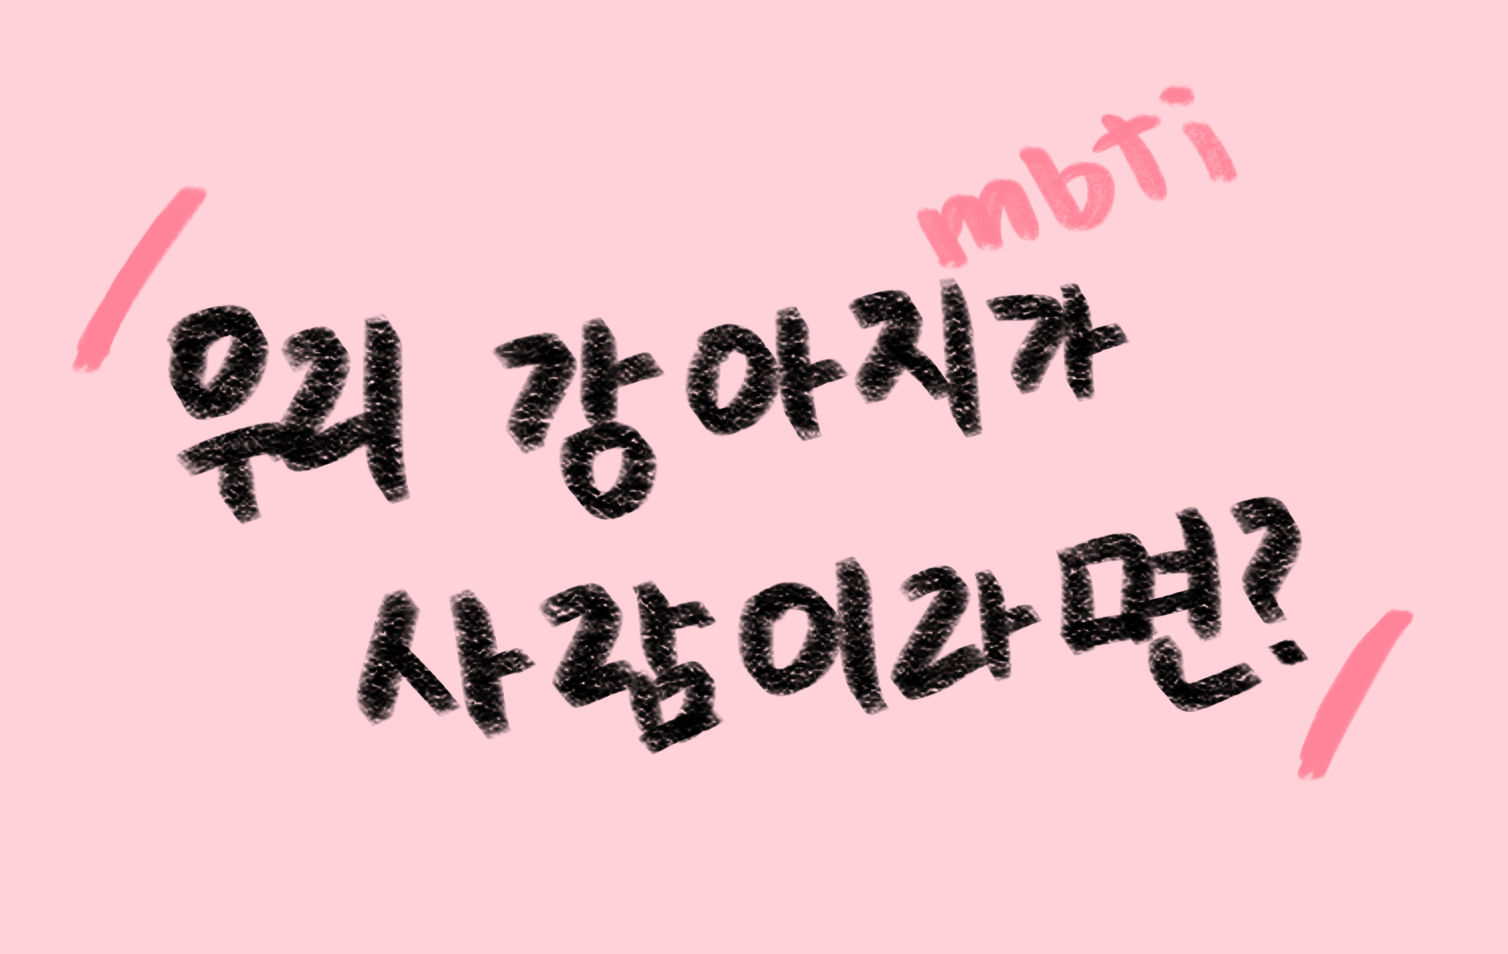 mbti
우리 강아지가
사람이라면?